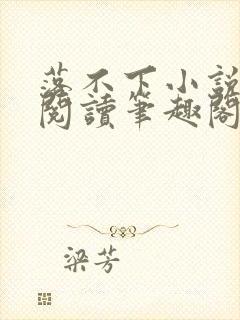 落不下小説
閱讀筆趣閣
梁芳